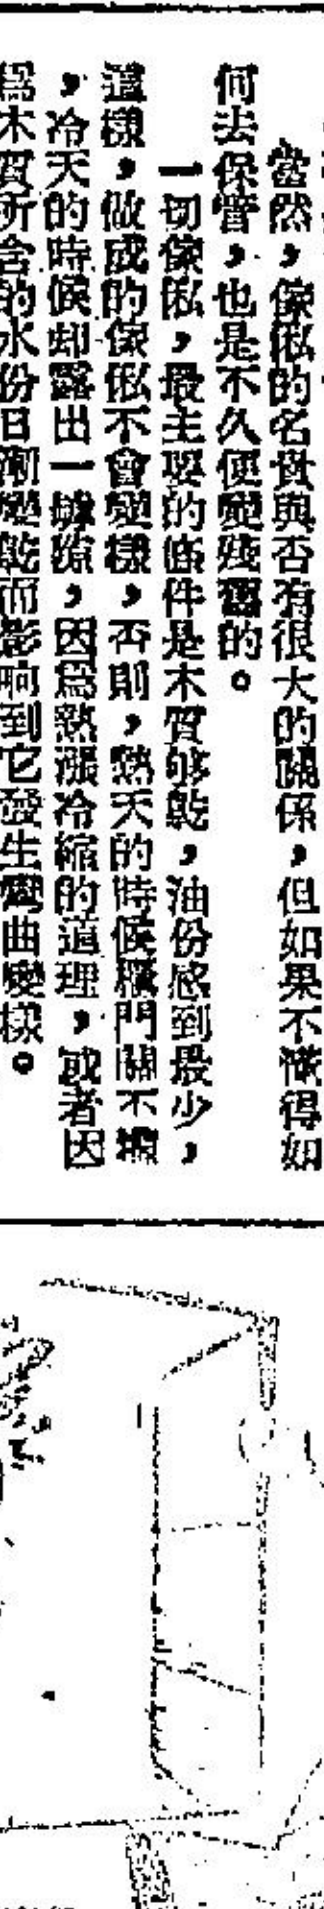 當然，傢俬的名貴與否有很大的關係，但如果不懂得如
何去保管，也是不久便變殘舊的。
一切傢俬，最主要的條件是木質够乾，油份感到最少，
這樣，做成的傢俬不會變樣，否則，熱天的時候櫃門關不攏
，冷天的時候却露出一條縫，因爲熱漲冷縮的道理，或者因
爲木質所含的水份日漸變乾而影响到它發生彎曲變樣。